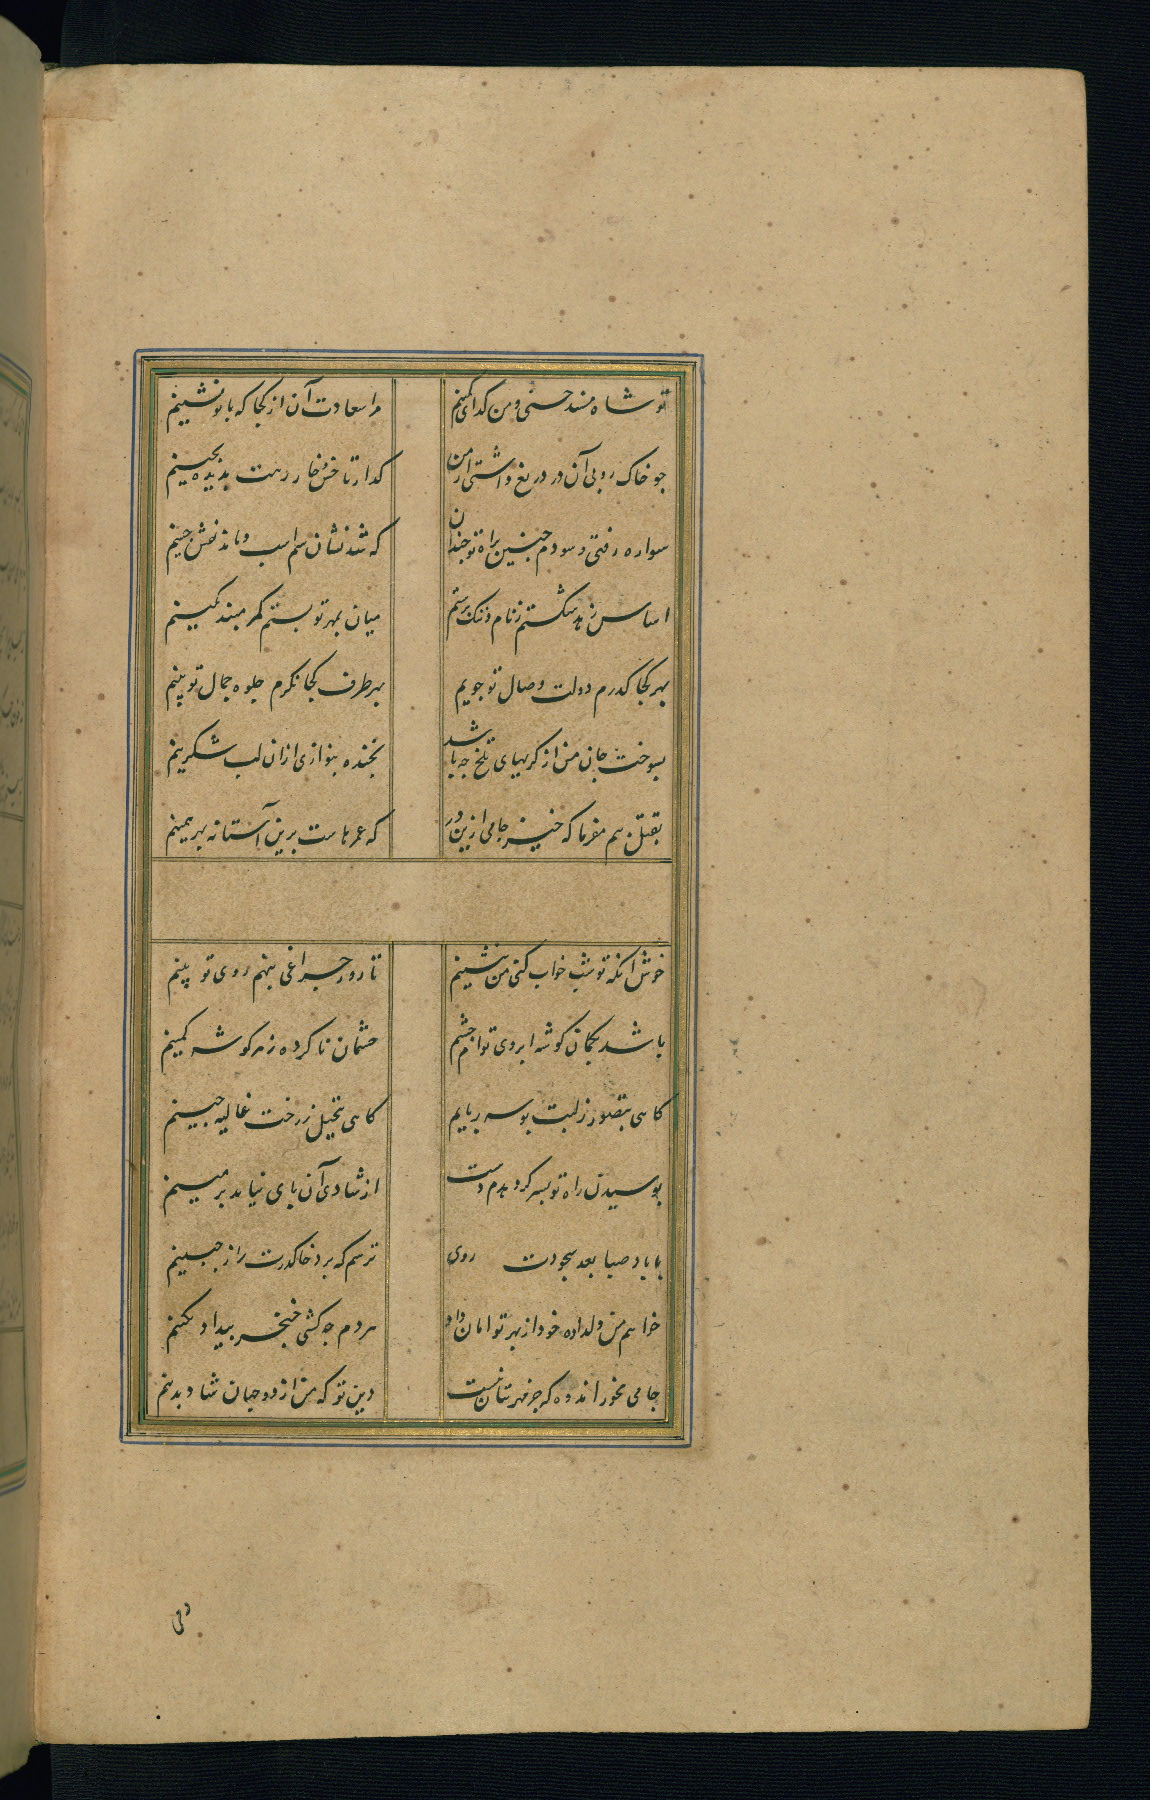 تو شاه مسند حسنی و من کدای کمینم مرا سعادت آن از کجا که با تو نشینم
جو خاک روبی آن در دریغ داشتی از من کدار تا خس و خار رهت بدیده بجینم
سواره رفتی و سودم جبین براه تو جندان که شد نشان سم اسب و ماند نقش جبینم
اساس زهد شکستم ز نام و ننک برستم میان بمهر تو بستم کمر مبند بکینم
بهر کجا کدرم دولت وصال تو جویم بهر طرف که نکرم جلوه جمال تو بینم
بسوخت جان من از کریهای تلخ جه باشد بخنده بنوازی ازان لب شکرینم
بقتل هم مفرما که خیز جامی ازین در که عمرهاست برین آستانه بهر همینم
خوش آنکه تو شب خواب کنی من بنشینم تا روز جراغی بنهم روی تو بینم
باشد بکمان کوشه ابروی توام جشم جشمان نا کرده ز هر کوشه کمینم
کاهی بتصور ز لبت بوسه ربایم کاهی بتخیل ز رخت غالیه جینم
بوسیدن راه تو بسر کرد هدم دست از شادی آن پای نیاید بزمینم
با باد صبا بعد سجودت روی ترسم که برد خاک درت را ز جبینم
خواهم من دلداده خود از بهر تو امان داد هر دم جه کشی خنجر بیداد بکینم
جامی مخور اندوه که جز مهر بتان نیست دین تو که من از دو جهان شاد بدینم